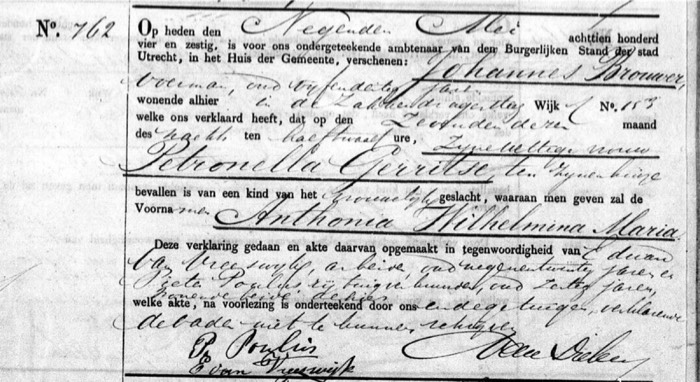 No. 762
Op heden den Negenden Mei achttien honderd
vier en zestig, is voor ons ondergeteekende ambtenaar van den Burgerlijken Stand der stad
Utrecht, in het Huis der Gemeente, verschenen: Johannes Brouwer,
voerman, oud jaren
wonende alhier in de Wijk No. 153
welke ons verklaard heeft, dat op den Zevenden dezer maand
des nachts ten half twaalf ure, Zijne huisvrouw
Petronella Gerritse ten zijnen huize
bevallen is van een kind van het vrouwelijk geslacht, waaraan men geven zal de
Voornamen Anthonia Wilhelmina Maria
Deze verklaring gedaan en akte daarvan opgemaakt in tegenwoordigheid van Eduard
van Vreeswijk, arbeider, oud negenentwintig jaren en
Peter Poulus, oud Zestig jaren,
wonende beide alhier
welke akte, na voorlezing is onderteekend door ons en de getuigen, verklarende
de vader niet te kunnen schrijven
P Poulus
E van Vreeswijk